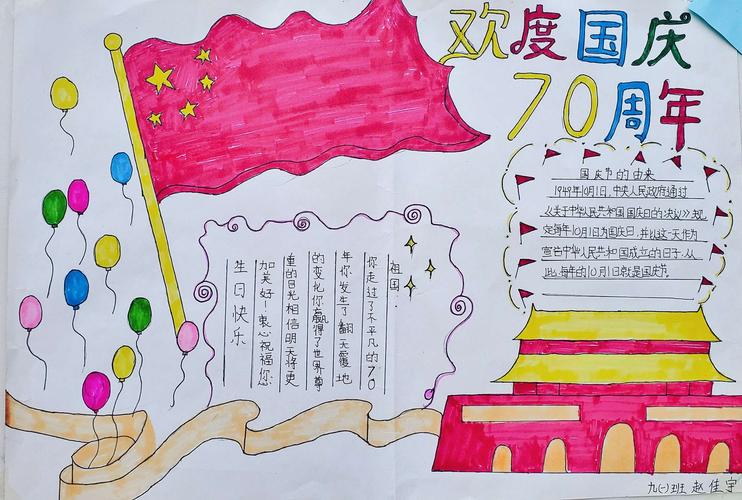 欢度国庆
70周年
国庆节的由来
1949年10月1日,中央人民政府通过
《关于中华人民共和国国庆日的决议》规
定每年10月1日为国庆日,并以这一天作为
宣告中华人民共和国成立的日子.从
此,每年的10月1日就是国庆节.
祖国:
你走过了不平凡的70
年你发生了翻天覆地
的变化你赢得了世界尊
重的目光相信明天将更
加美好!衷心祝福您:
生日快乐
九(一)班 赵佳宇